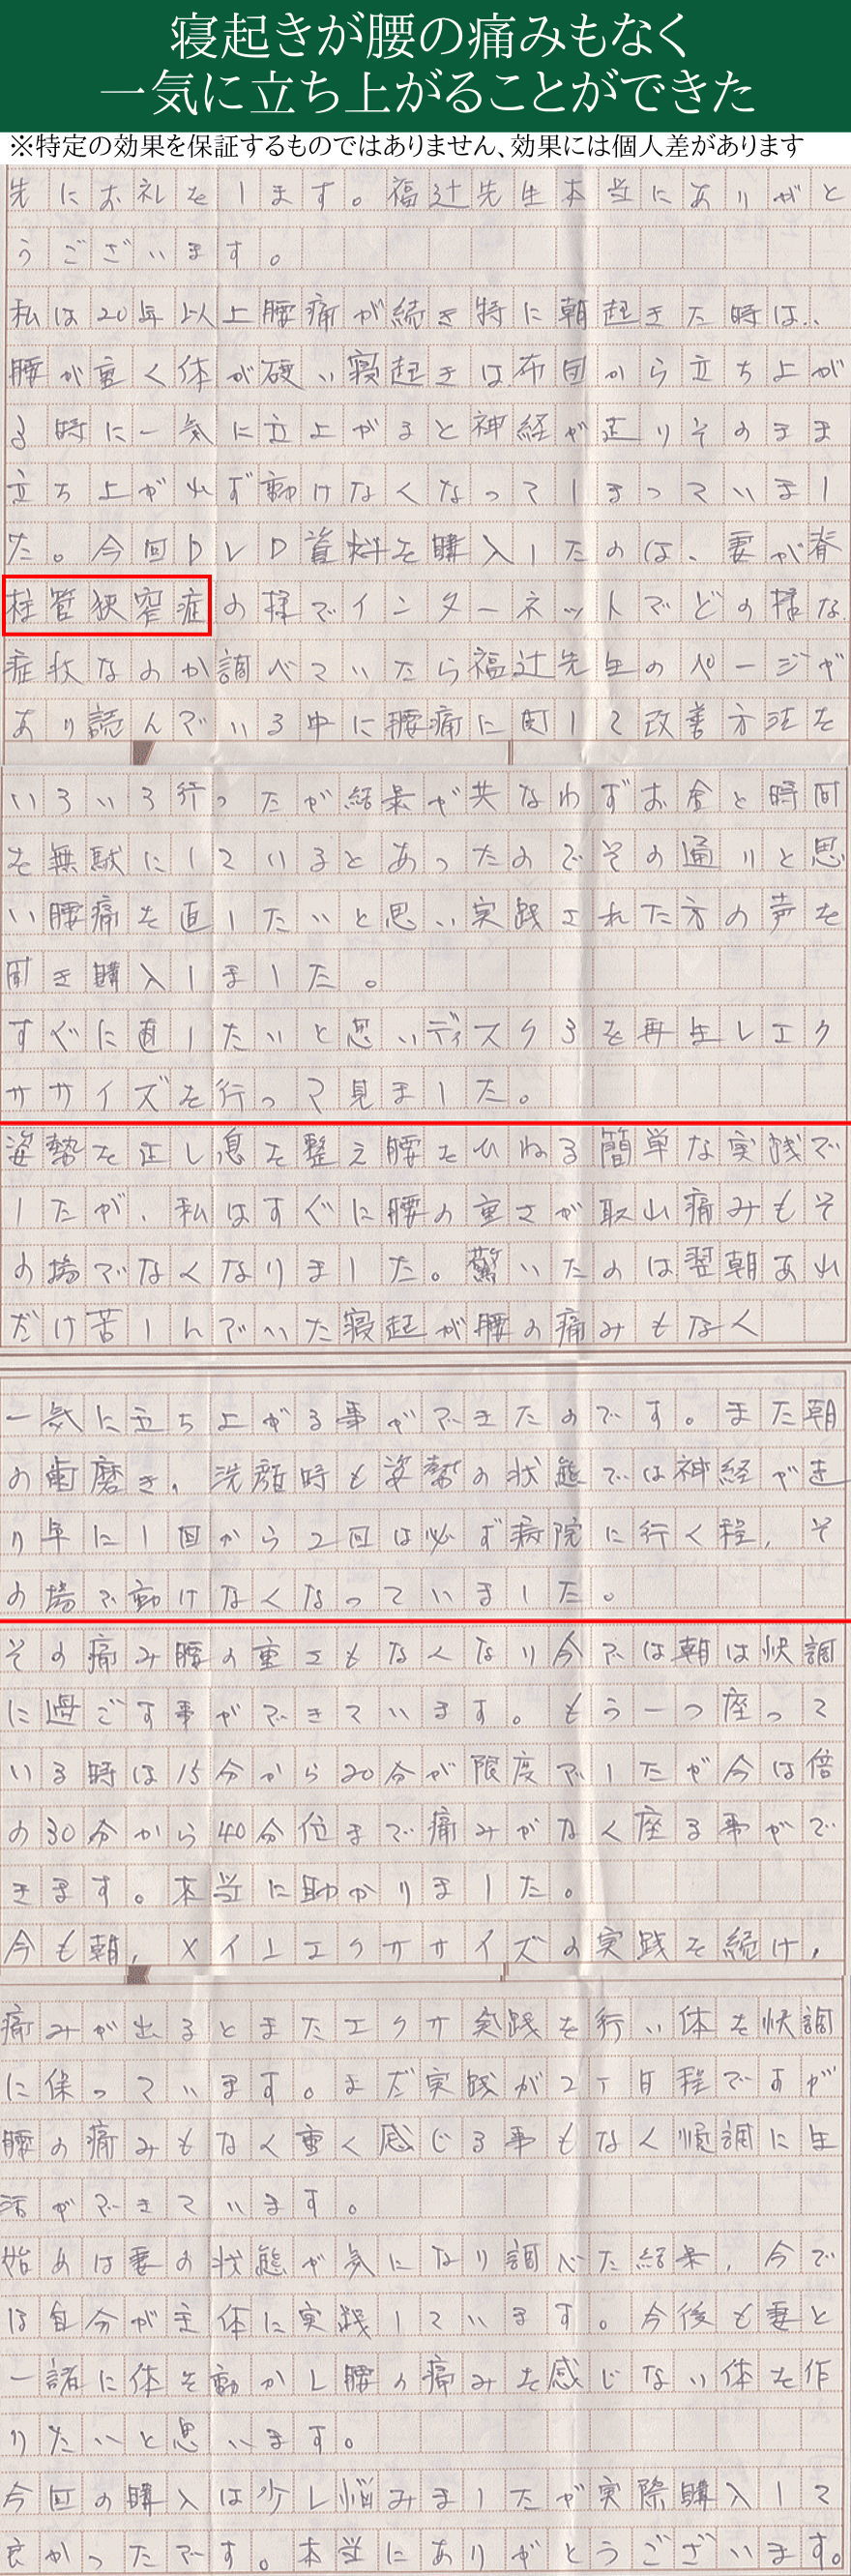 寝起きが腰の痛みもなく
一気に立ち上がることができた
※特定の効果を保証するものではありません、効果には個人差があります
先にお礼をします。福辻先生本当にありがと
うございます。
私は20年以上腰痛が続き特に朝起きた時は、
腰が重く体が硬い寝起きは布団から立ち上が
る時に一気に立上がると神経が走りそのまま
立ち上がれず動けなくなってしまっていまし
た。今回DVD資料を購入したのは、妻が脊
柱管狭窄症の様でインターネットでどの様な
症状なのか調べていたら福辻先生のページが
あり読んでいる中に腰痛に関して改善方法を
いろいろ行ったが結果が共なわずお金と時間
を無駄にしているとあったのでその通りと思
い腰痛を直したいと思い実践された方の声を
聞き購入しました。
すぐに直したいと思いディスク3を再生しエク
ササイズを行って見ました。
姿勢を正し息を整え腰をひねる簡単な実践で
したが、私はすぐに腰の重さが取れ痛みもそ
の場でなくなりました。驚いたのは翌朝あれ
だけ苦しんでいた寝起が腰の痛みもなく
一気に立ち上がる事ができたのです。また朝
の歯磨き、洗顔時も姿勢の状態では神経が走
り年に1回から2回は必ず病院に行く程、そ
の場で動けなくなっていました。
その痛み腰の重さもなくなり今では朝は快調
に過ごす事ができています。もう一つ座って
いる時は15分から20分が限度でしたが今は倍
の30分から40分位まで痛みがなく座る事がで
きます。本当に助かりました。
今も朝、メインエクササイズの実践を続け、
痛みが出るとまたエクサ実践を行い体を快調
に保っています。まだ実践が2ヶ月程ですが
腰の痛みもなく重く感じる事もなく順調に生
活ができています。
始めは妻の状態が気になり調べた結果、今で
は自分が主体に実践しています。今後も妻と
一諸に体を動かし腰の痛みを感じない体を作
りたいと思います。
今回の購入は少し悩みましたが実際購入して
良かったです。本当にありがとうございます。